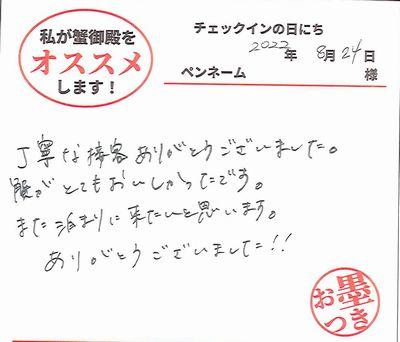 私が蟹御殿を
オススメ
します!
チェックインの日にち
2022年 8月24日
ペンネーム 様
丁寧な接客ありがとうございました。
豚がとてもおいしかったです。
また泊まりに来たいと思います。
ありがとうございました!!
お墨つき